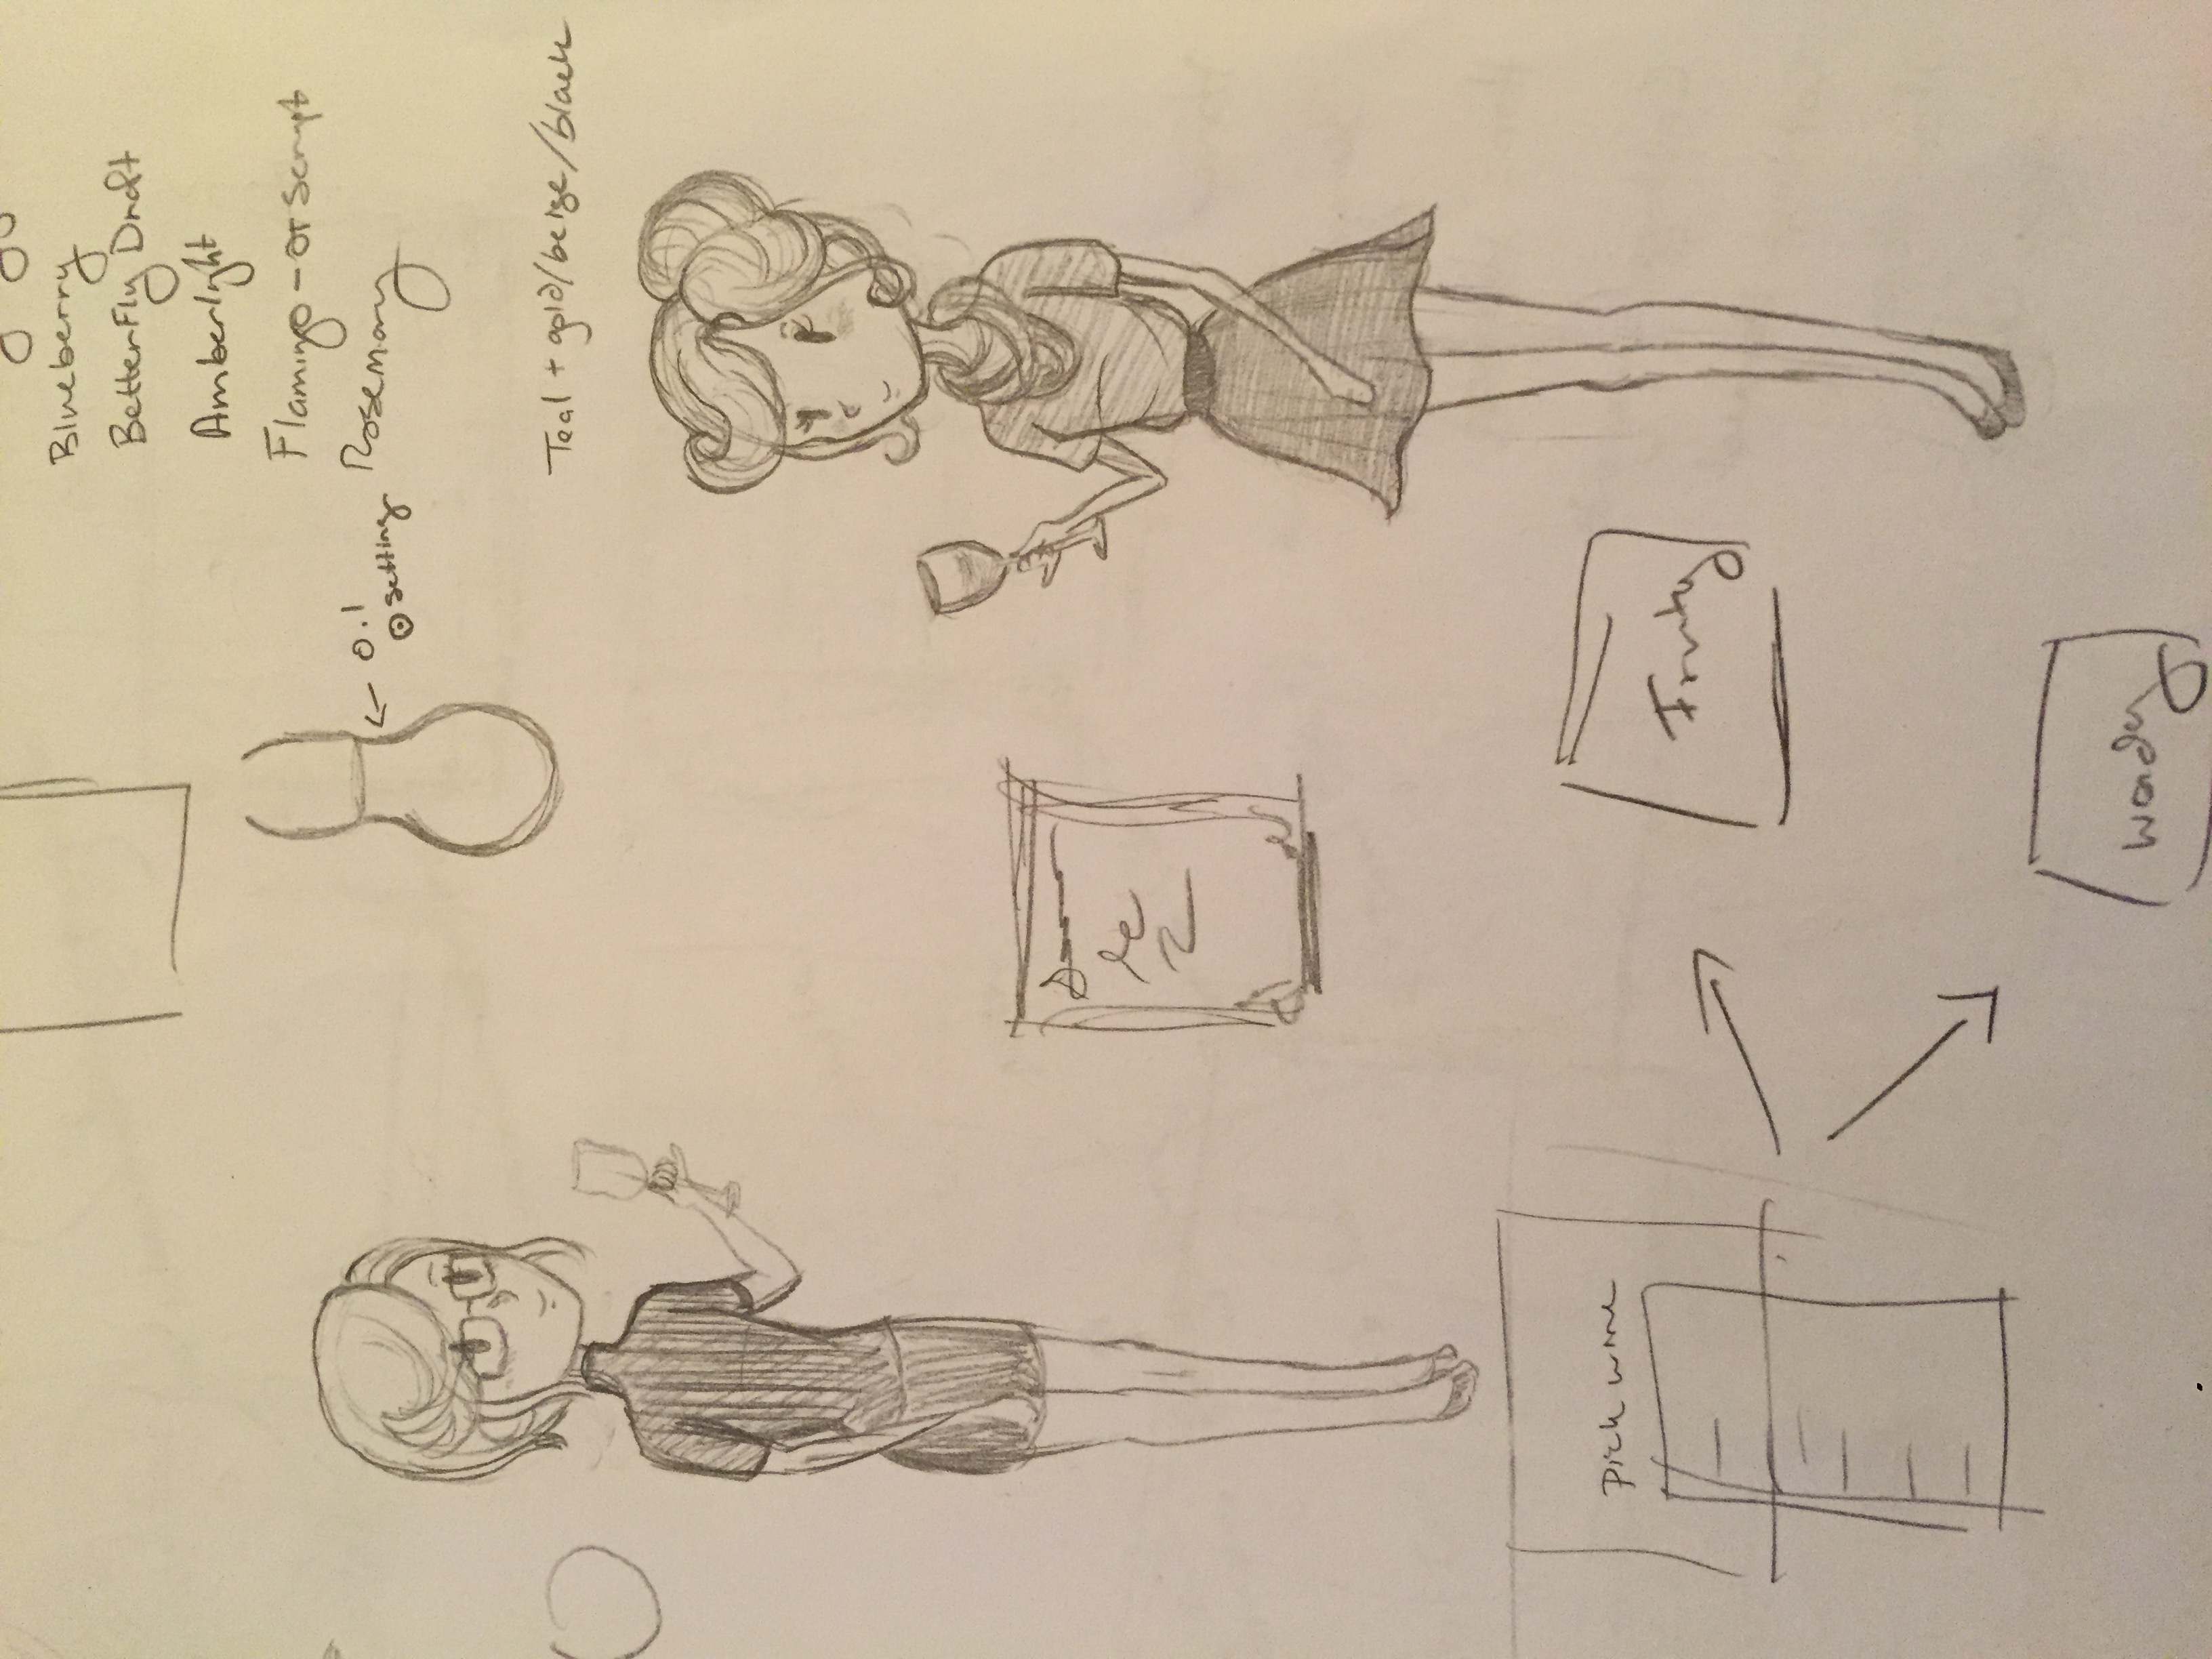 Blueberry
BetterFly Draft
Amberlight
Flamingo - OT Script
Rosemary
← 0.1
setting
Teal + gold/beige/black
Pick wine
Fruity
Woody